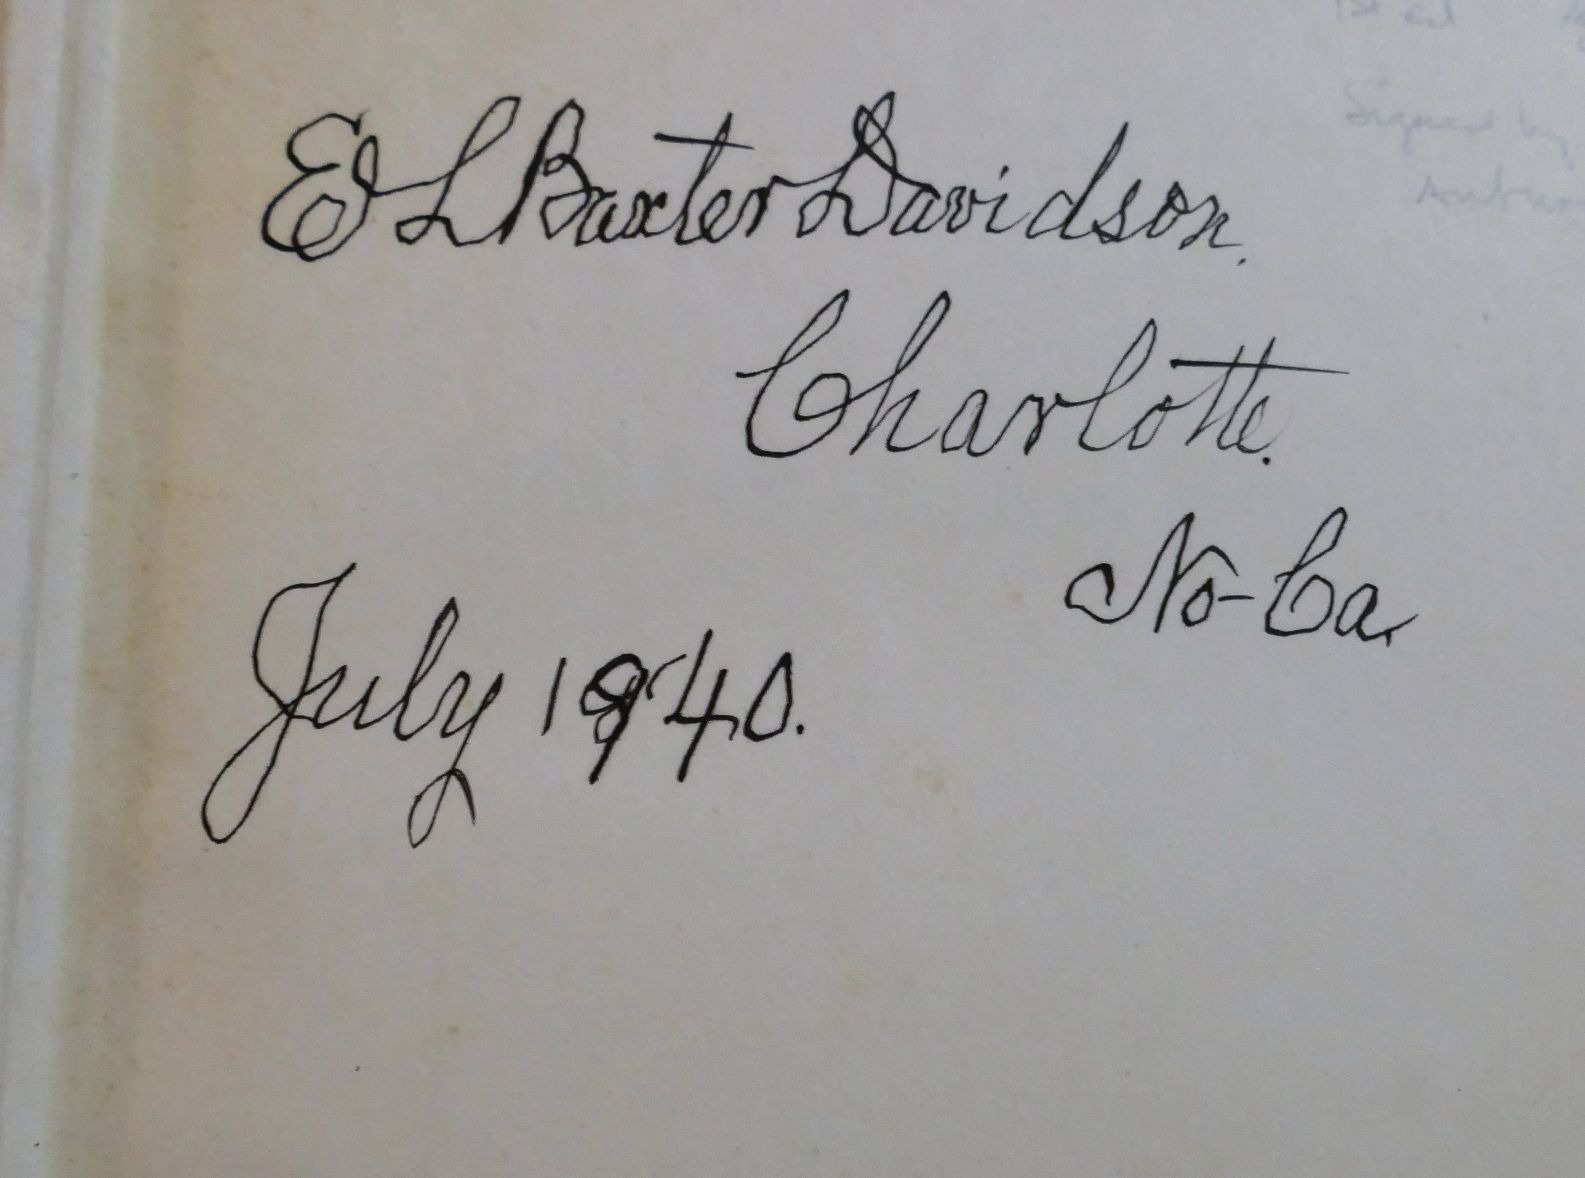 1st ed
Signed by
E L Baxter Davidson.
Charlotte.
No-Ca.
July 1940.